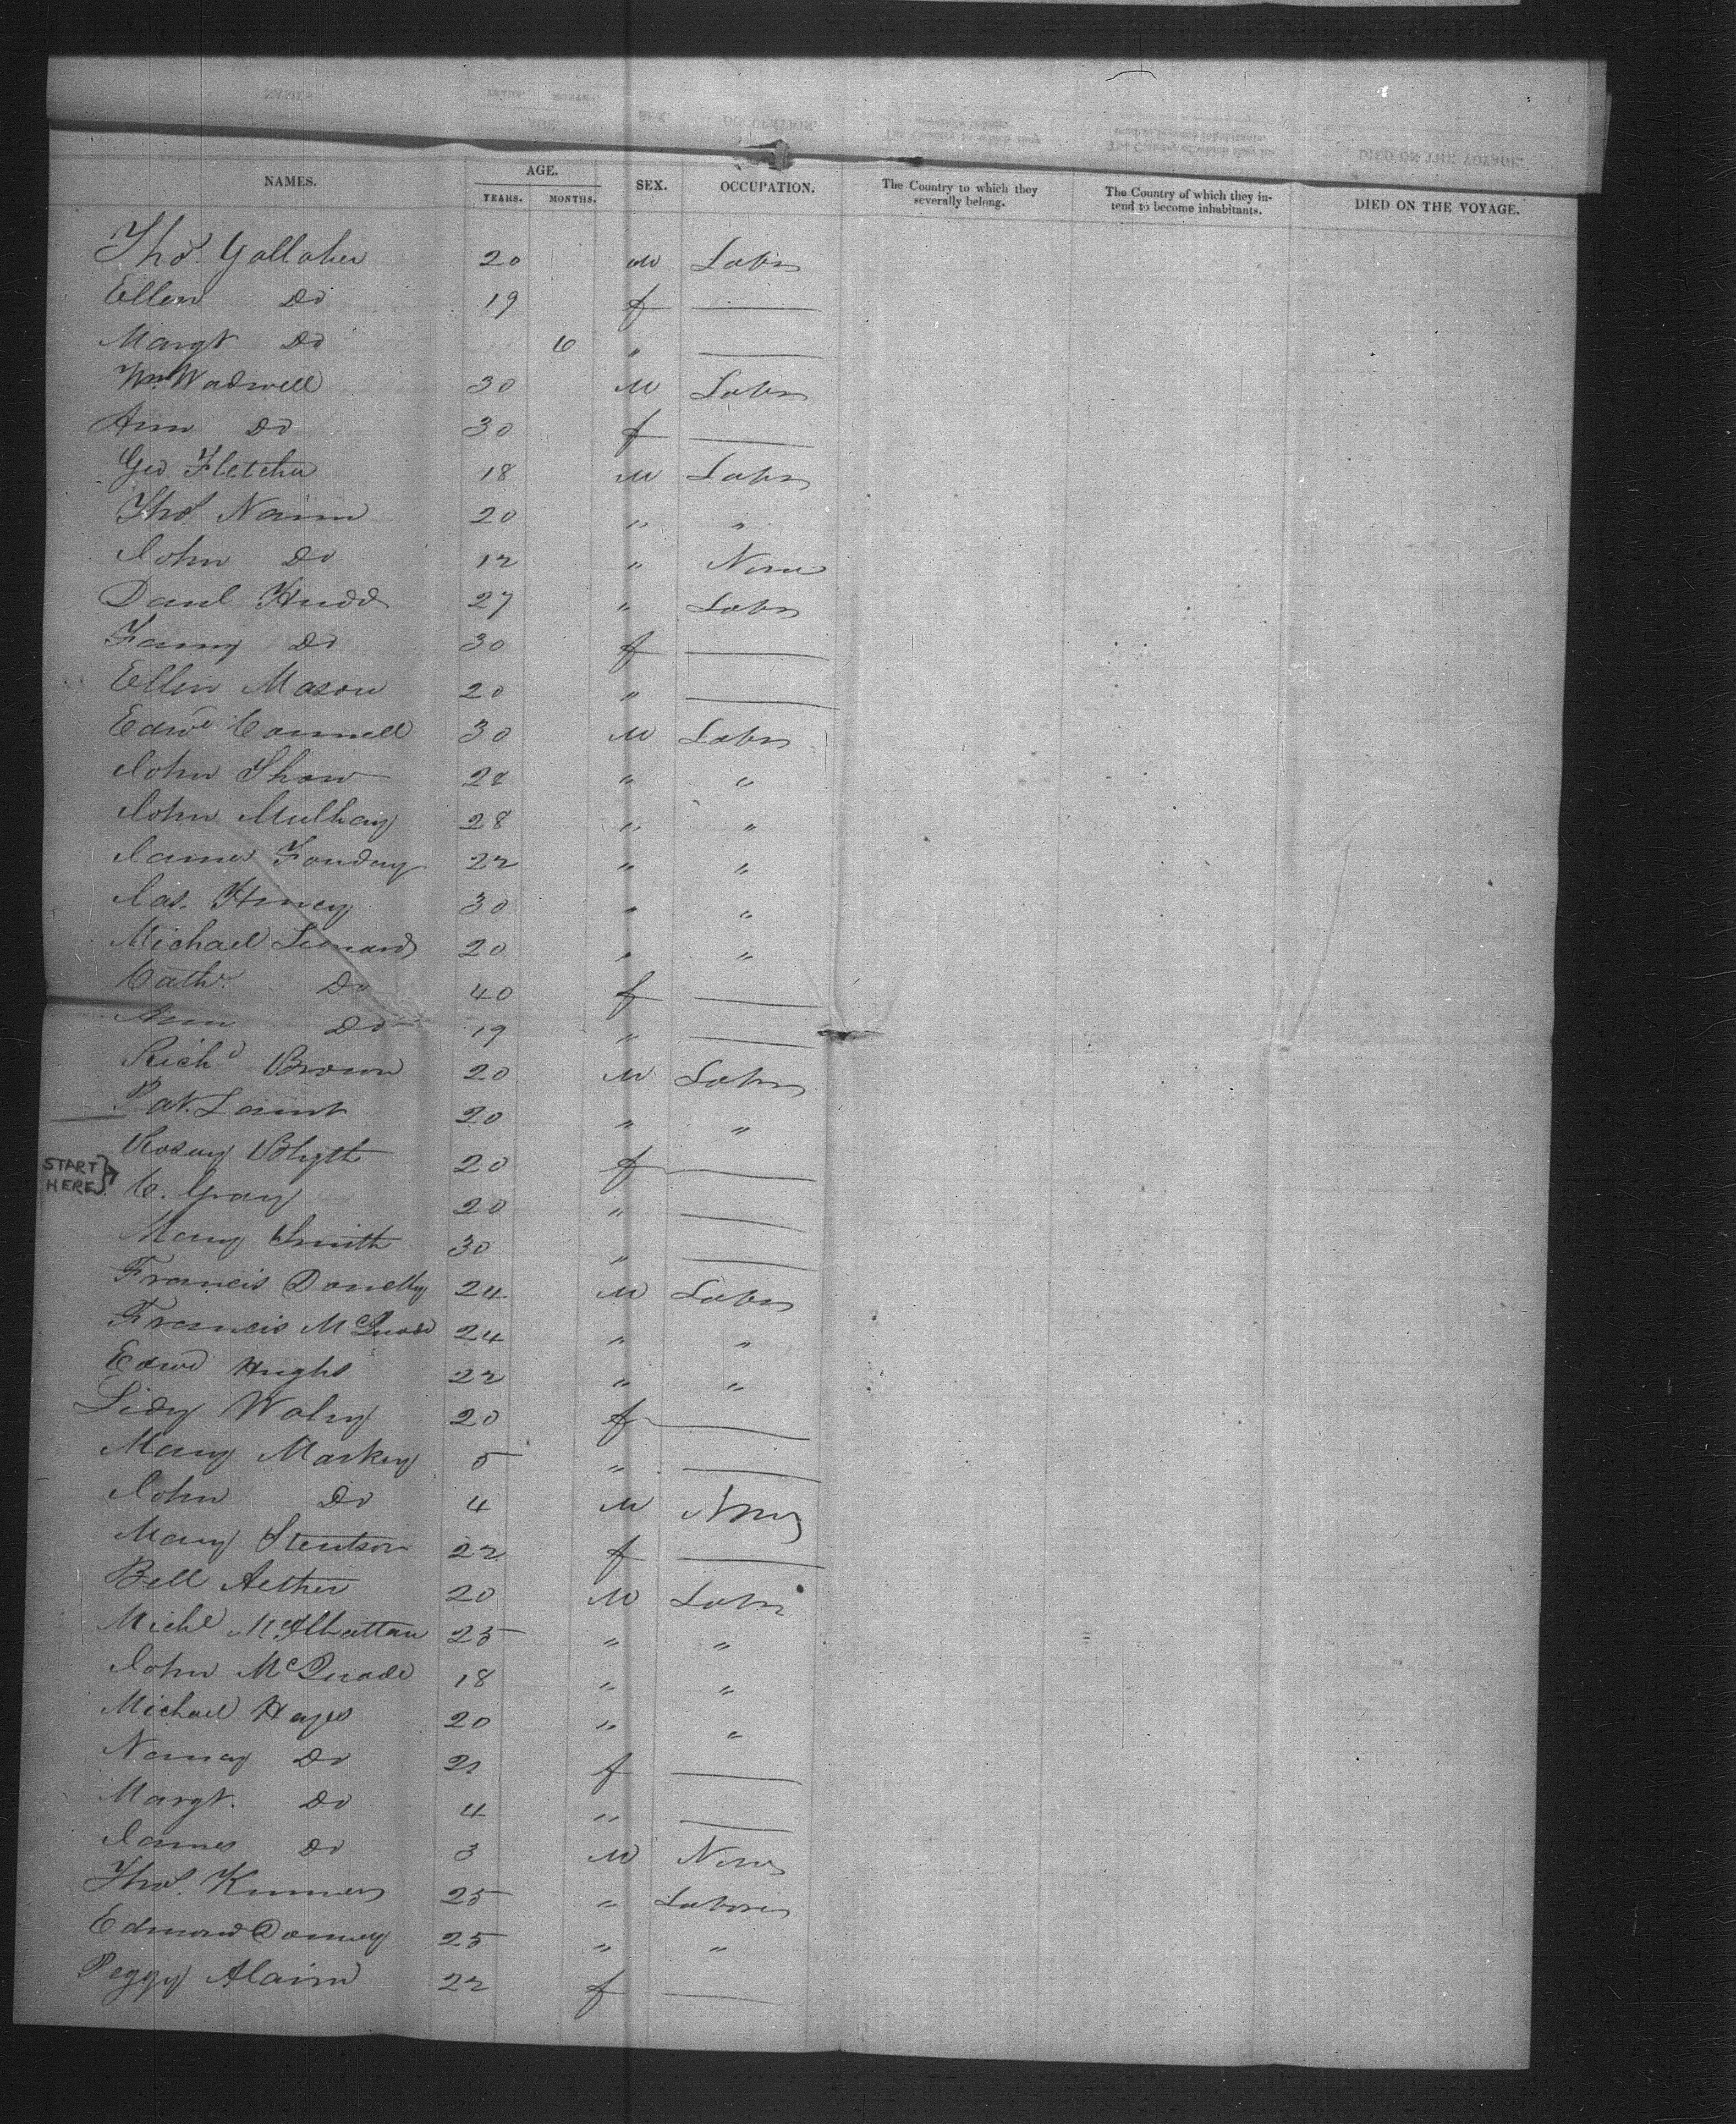 NAMES. AGE. YEARS. MONTHS. SEX. OCCUPATION. The Country to which they severally belong. The Country of which they intend to become inhabitants. DIED ON THE VOYAGE.
Thos. Gallaher 20 M Labr
Ellen Do 19 f
Margt Do 6 "
Wm Wadwell 30 M Labr
Ann Do 30 f
Geo Fletcher 18 M Labr
Thos. Nairn 20 " "
John Do 12 " None
Danl Hudd 27 " Labr
Fanny Do 30 f
Ellen Mason 20 "
Edwd Connell 30 M Labr
John Shaw "  "
John Mulhay 28 " "
James 22 " "
Jas. 30 " "
Michael Leonard 20 " "
Cathe. Do 40 f
Ann Do 19 "
Richd Brown 20 M Labr
Pat. 20 " "
Rosay Blyth 20 f
START HERE
C. Gray 20 "
Mary Smith 30 "
Francis Donelly 24 M Labr
Francis McQuade 24 " "
Edwd Hughs 22 " "
Lidy 20 f
Mary Markey 5 "
John Do 4 M None
Mary Stentson 22 f
Bell 20 M Labr
Michl 25 " "
John McQuade 18 " "
Michael Hayes 20 " "
Nancy Do 21 f
Margt. Do 4 "
James Do 3 M None
Thos. 25 " Laborer
Edmond 25 " "
Peggy 22 f